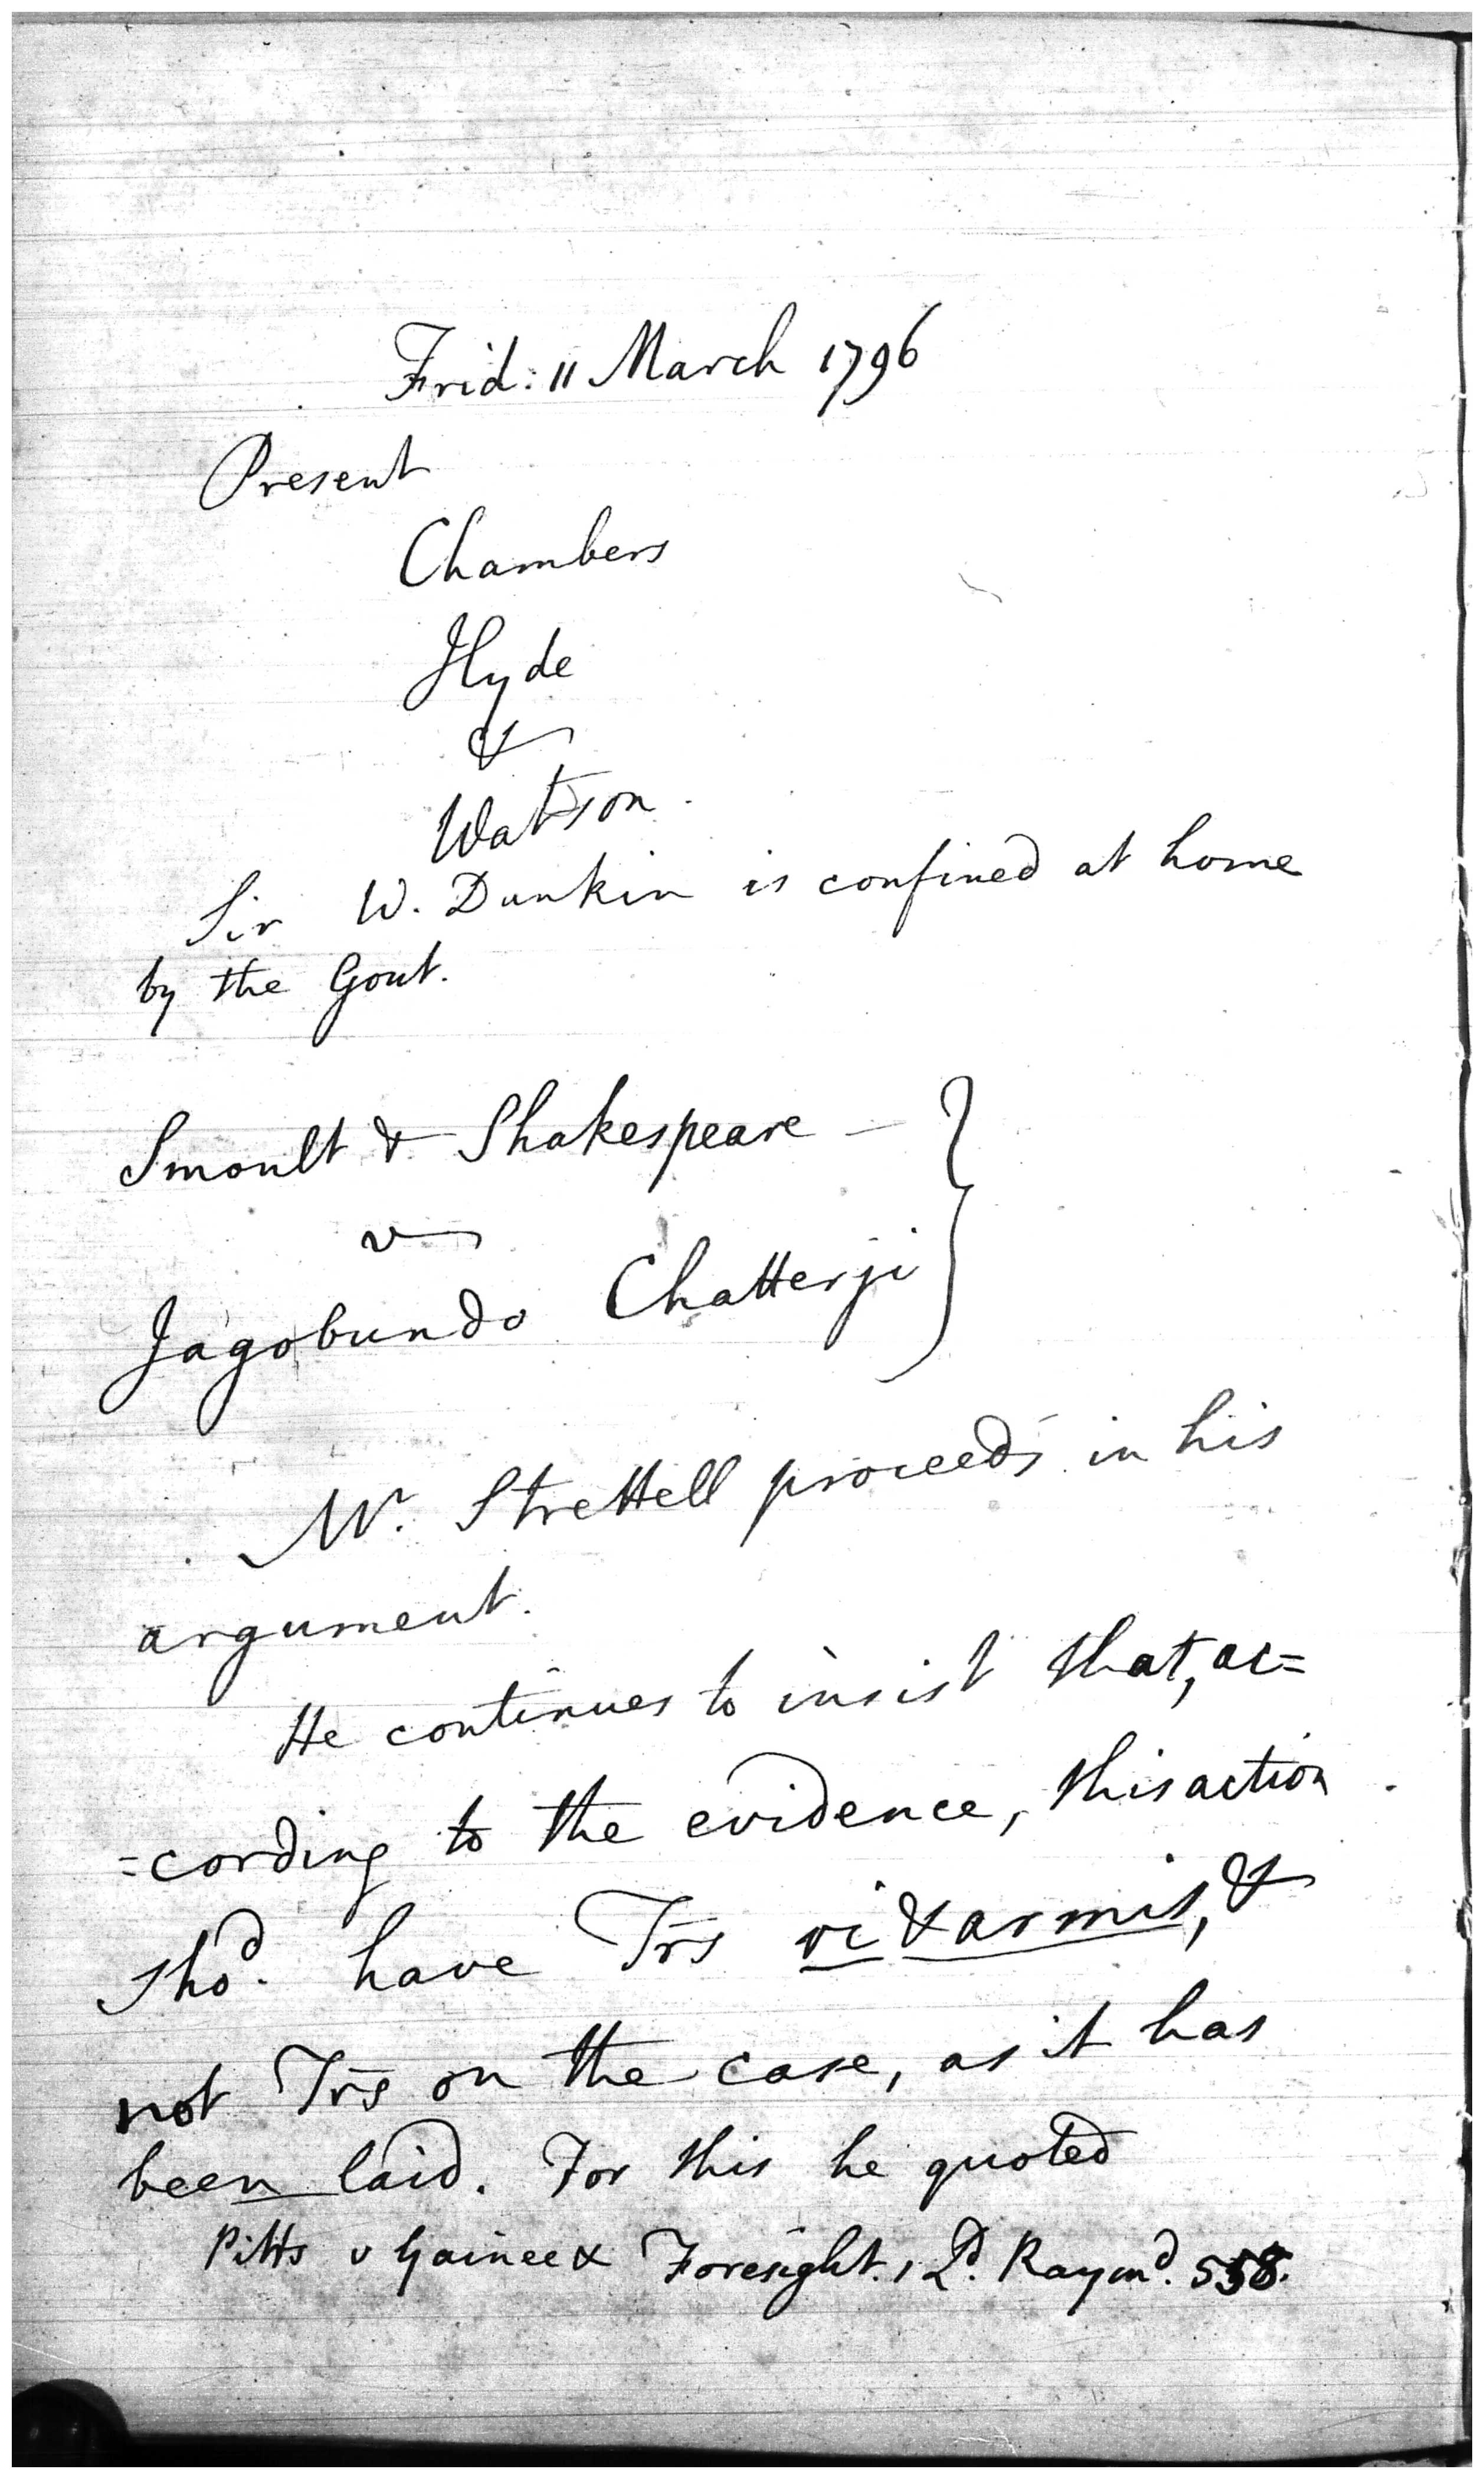 Frid: 11 March 1796
Present
Chambers
Hyde
&
Watson.
Sir W. Dunkin is confined at home
by the Gout.
Smoult & Shakespeare –
v
Jagobundo Chatterji
Mr. Strettell proceeds in his
argument.
He continues to insist that, ac=
=cording to the evidence, this action
shod. have Trs vi & armis, &
not Trs on the case, as it has
been laid. For this he quoted
Pitts v Gainee & Foresight. 1 Ld. Raymd. 558.